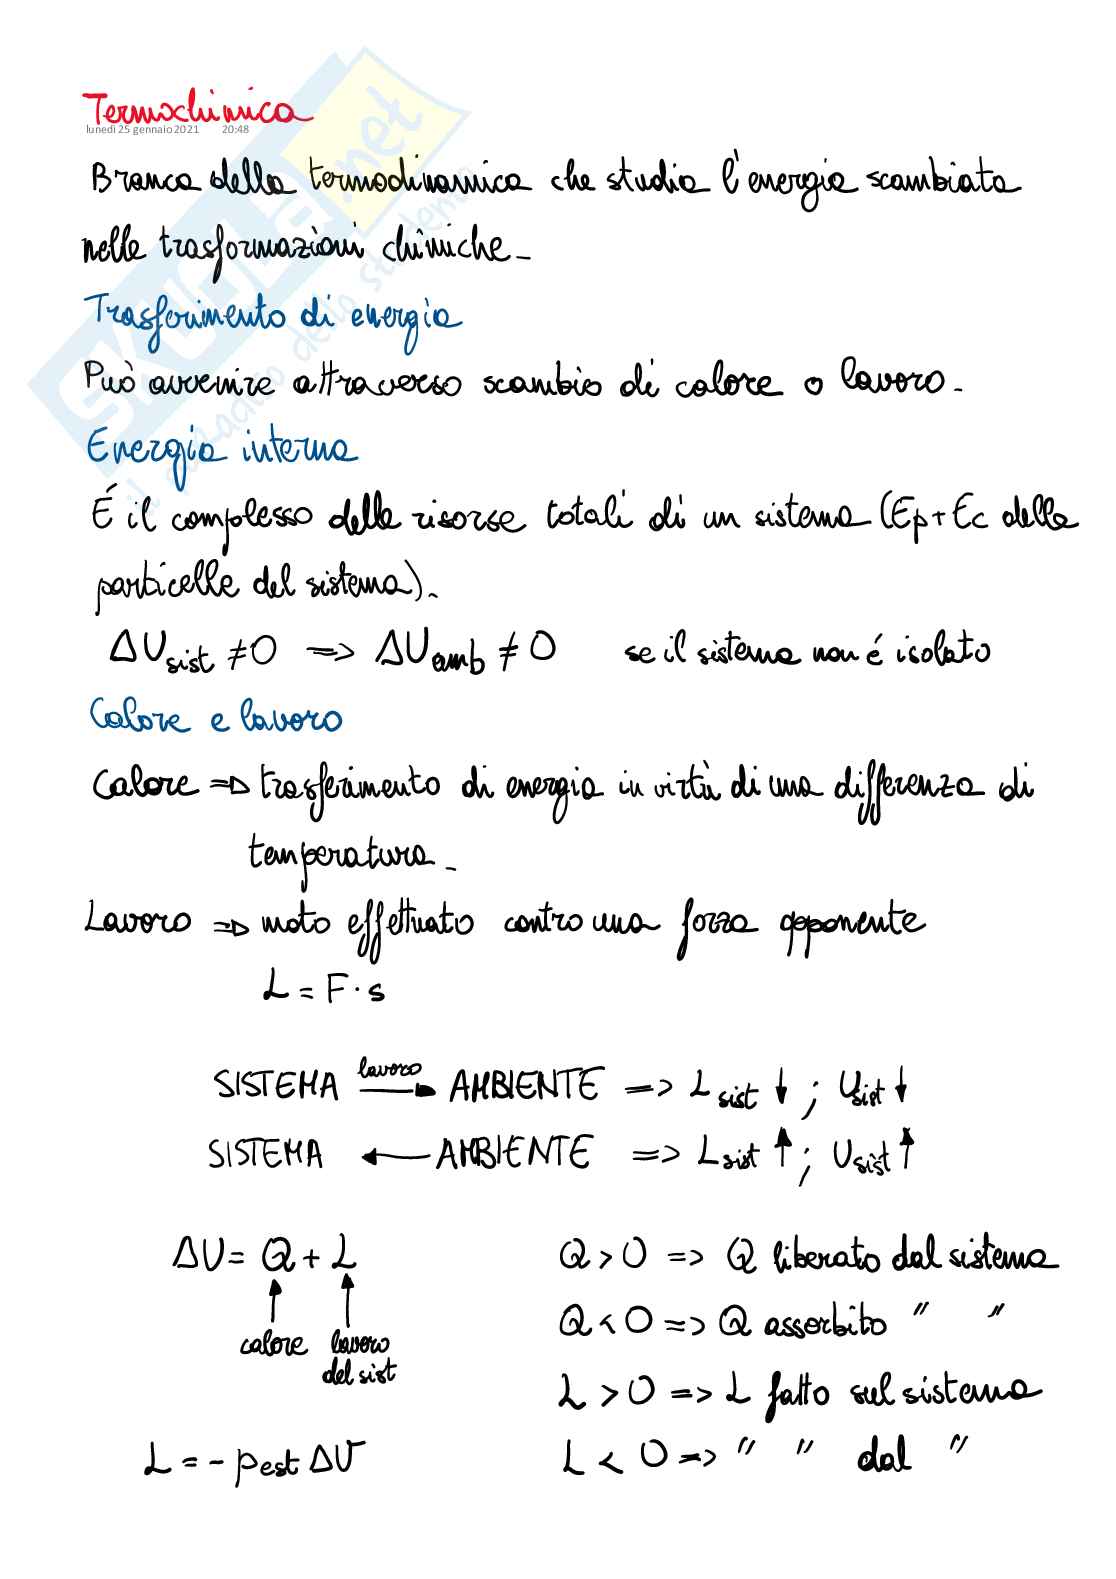 Termochimica
lunedì 25 gennaio 2021 20:48
Branca della termodinamica che studia l'energia scambiata
nelle trasformazioni chimiche.
Trasferimento di energia
Può avvenire attraverso scambio di calore o lavoro.
Energia interna
É il complesso delle risorse totali di un sistema (Ep + Ec delle
particelle del sistema).
ΔUsist ≠ 0 => ΔUamb ≠ 0 se il sistema non é isolato
Calore e lavoro
Calore => trasferimento di energia in virtù di una differenza di
temperatura.
Lavoro => moto effettuato contro una forza opponente
L = F · s
lavoro
SISTEMA → AMBIENTE => Lsist ↓ ; Usist ↓
SISTEMA ← AMBIENTE => Lsist ↑ ; Usist ↑
ΔU = Q + L
calore lavoro
del sist
Q > 0 => Q liberato dal sistema
Q < 0 => Q assorbito " "
L > 0 => L fatto sul sistema
L < 0 => " " dal "
L = - pest ΔV
SKUOLA.net
il paradiso dello studente